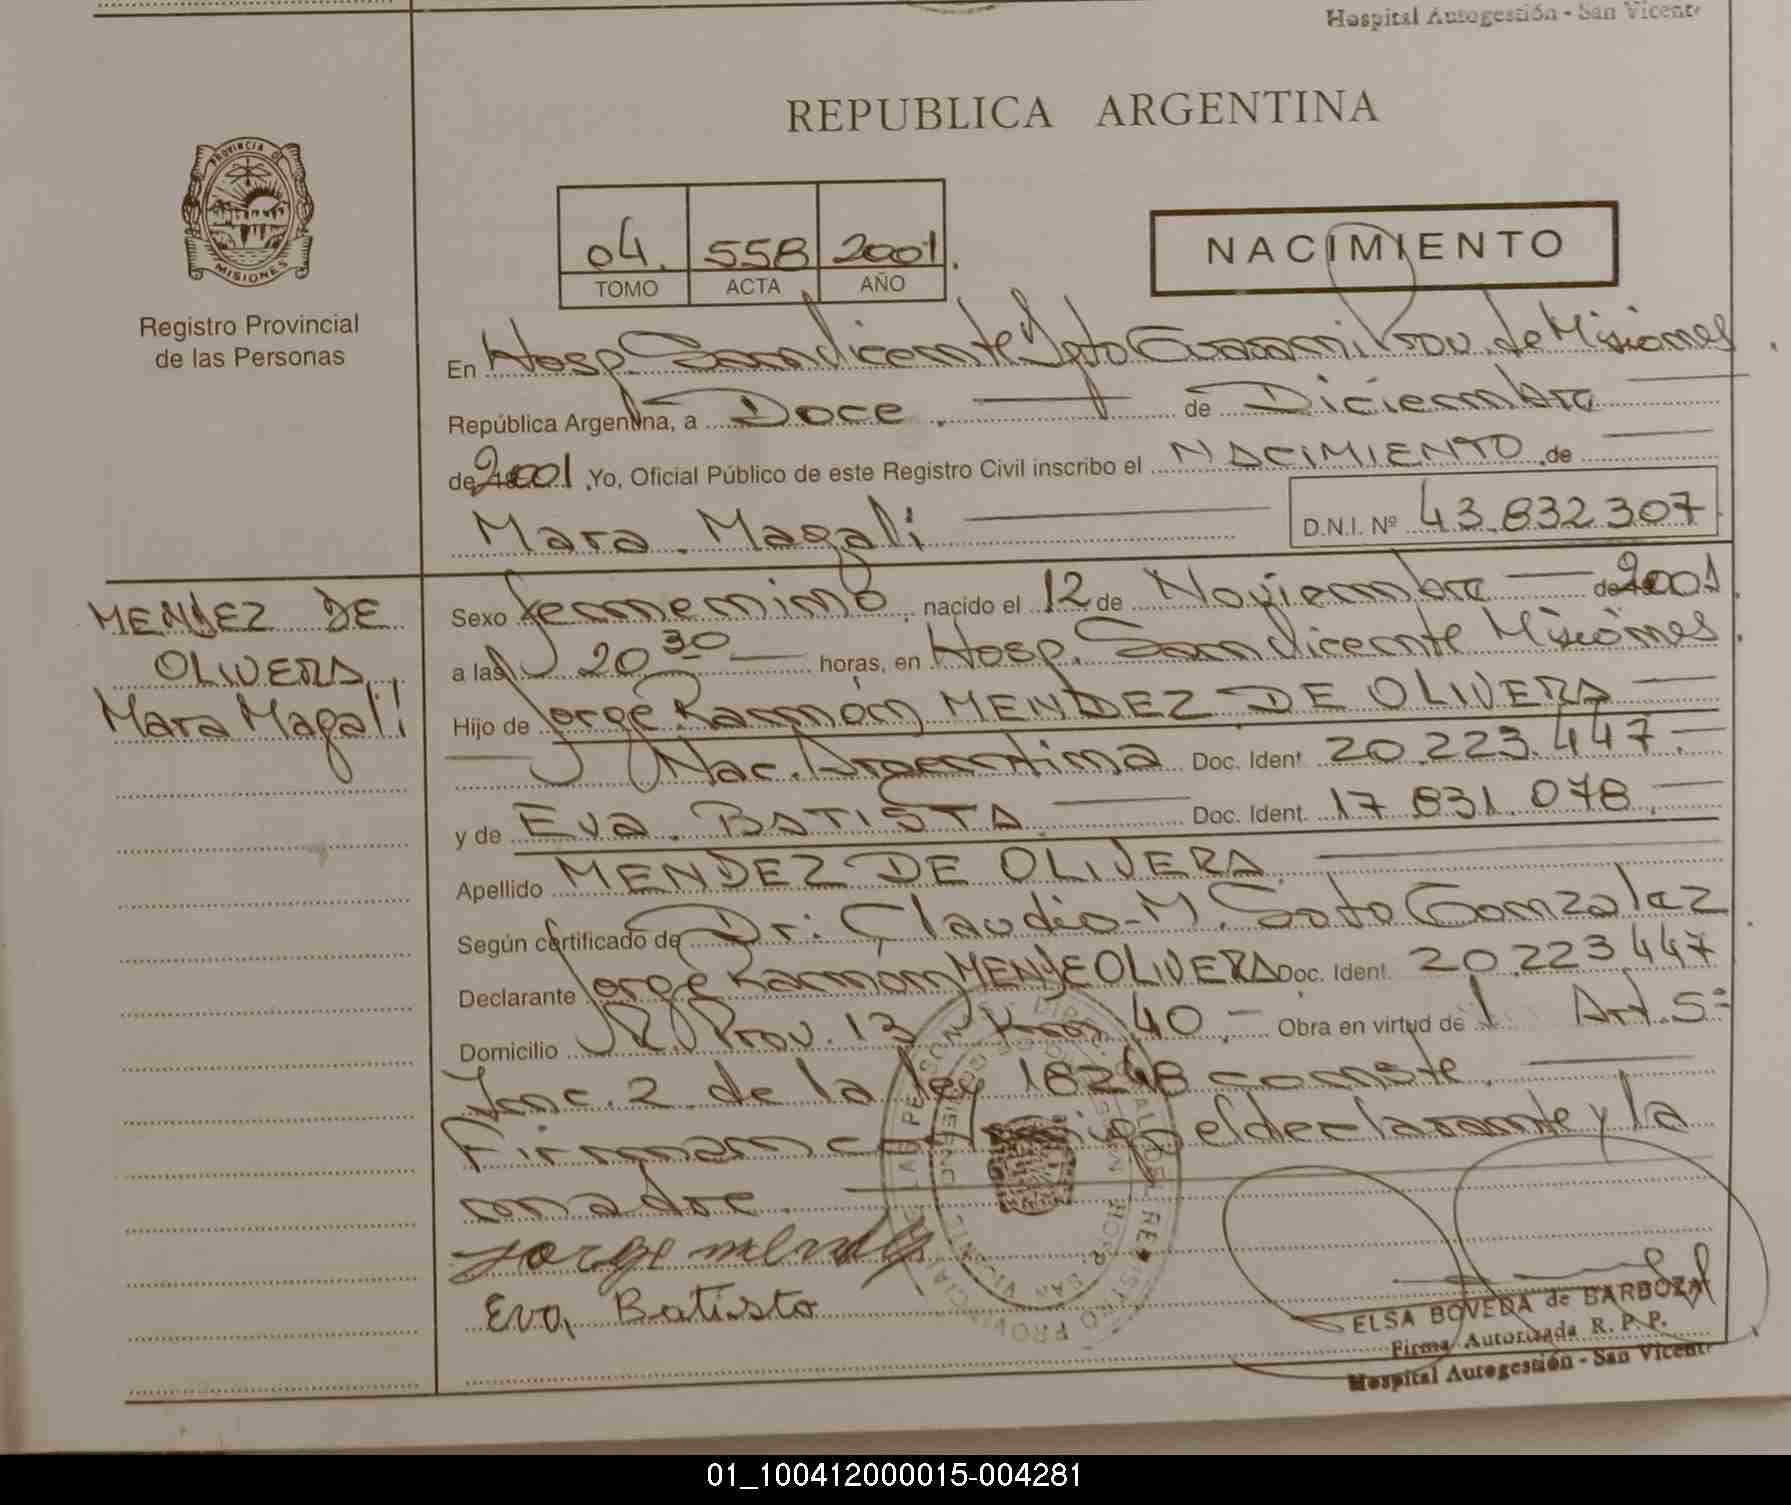 Hospital Autogestión - San Vicente
REPUBLICA ARGENTINA
PROVINCIA DE
MISIONES
Registro Provincial
de las Personas
04. 558 2001.
TOMO ACTA AÑO
NACIMIENTO
En Hosp. San Vicente Dpto Guarani Prov. de Misiones
República Argentina, a Doce. de Diciembre
de 2001 Yo, Oficial Público de este Registro Civil inscribo el NACIMIENTO de
Mara Magali
D.N.I. Nº 43.832.307
MENDEZ DE
OLIVERA
Mara Magali
Sexo femenino nacido el 12 de Noviembre de 2001
a las 20 30 horas, en Hosp. San Vicente Misiones.
Hijo de Jorge Ramón MENDEZ DE OLIVERA
Nac. Argentina Doc. Ident. 20.223.447.
y de Eva BATISTA Doc. Ident. 17.831.078.
Apellido MENDEZ DE OLIVERA
Según certificado de Dr: Claudio M. Soto Gonzalez
Declarante Jorge Ramón MENDE OLIVERA Doc. Ident. 20.223.447
Domicilio R. Prov. 13 Km 40.- Obra en virtud de Art. 5º
Inc. 2 de la ley 18248 conste.
Firman conmigo el declarante y la
madre.
Jorge mendez
Eva Batista
ELSA BOVEDA de BARBOZA
Firma Autorizada R. P. P.
Hospital Autogestión - San Vicente
01_100412000015-004281